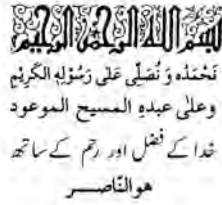 بسم الله الرحمن الرحيم
نَحْمَدُه وَ نُصَلِّى عَلى رَسُوْلِهِ الكَرِيْمِ
وعلىٰ عبدهِ المسيح الموعود
خدا کے فضل اور رحم کے ساتھ
هوالنّاصــر